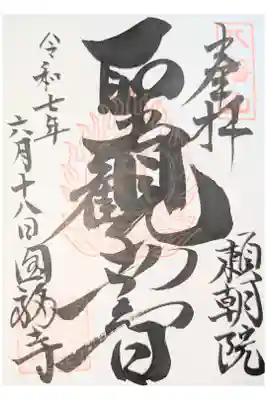 奉拝
頼朝院
聖観音
令和七年
六月十八日圓勝寺